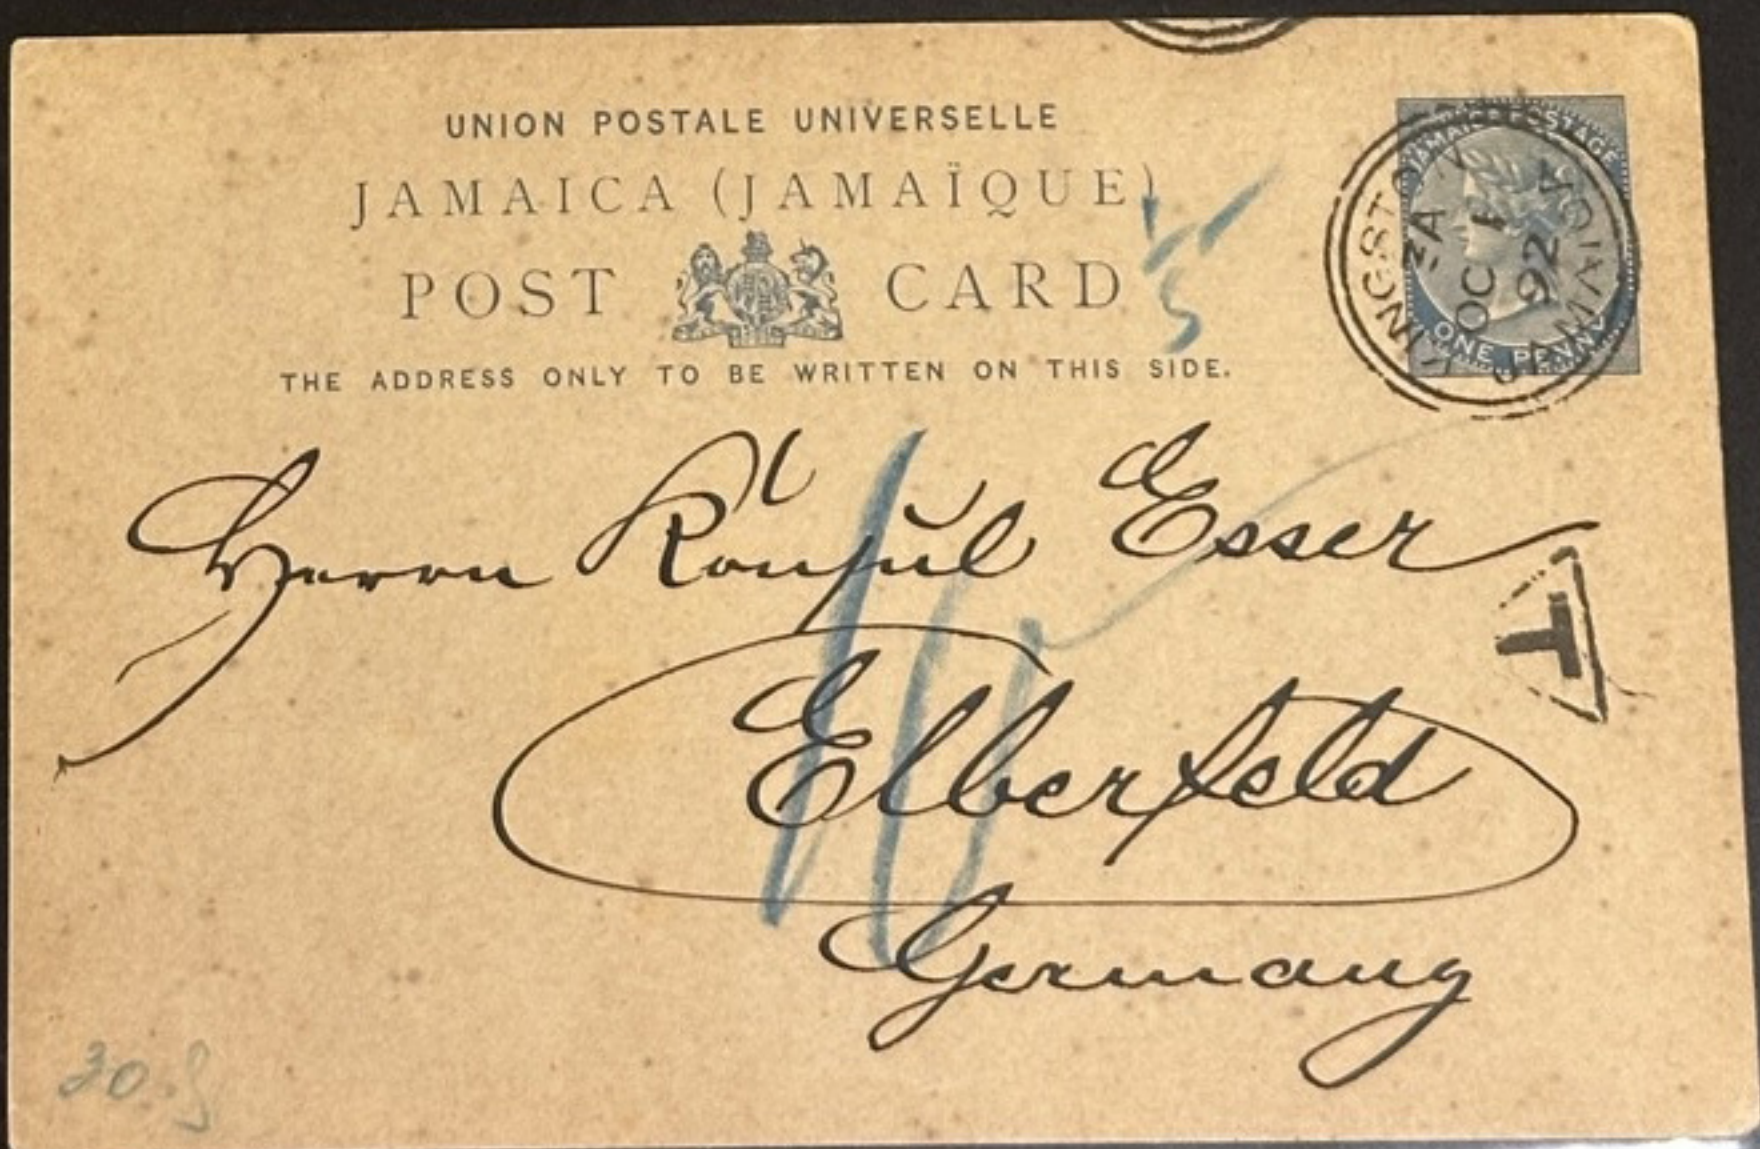 UNION POSTALE UNIVERSELLE
JAMAICA (JAMAÏQUE)
POST CARD
THE ADDRESS ONLY TO BE WRITTEN ON THIS SIDE.
JAMAICA POSTAGE
ONE PENNY
KINGSTON
A
OC 1
92
JAMAICA
Herrn Konsul Esser
T
Elberfeld
Germany
30